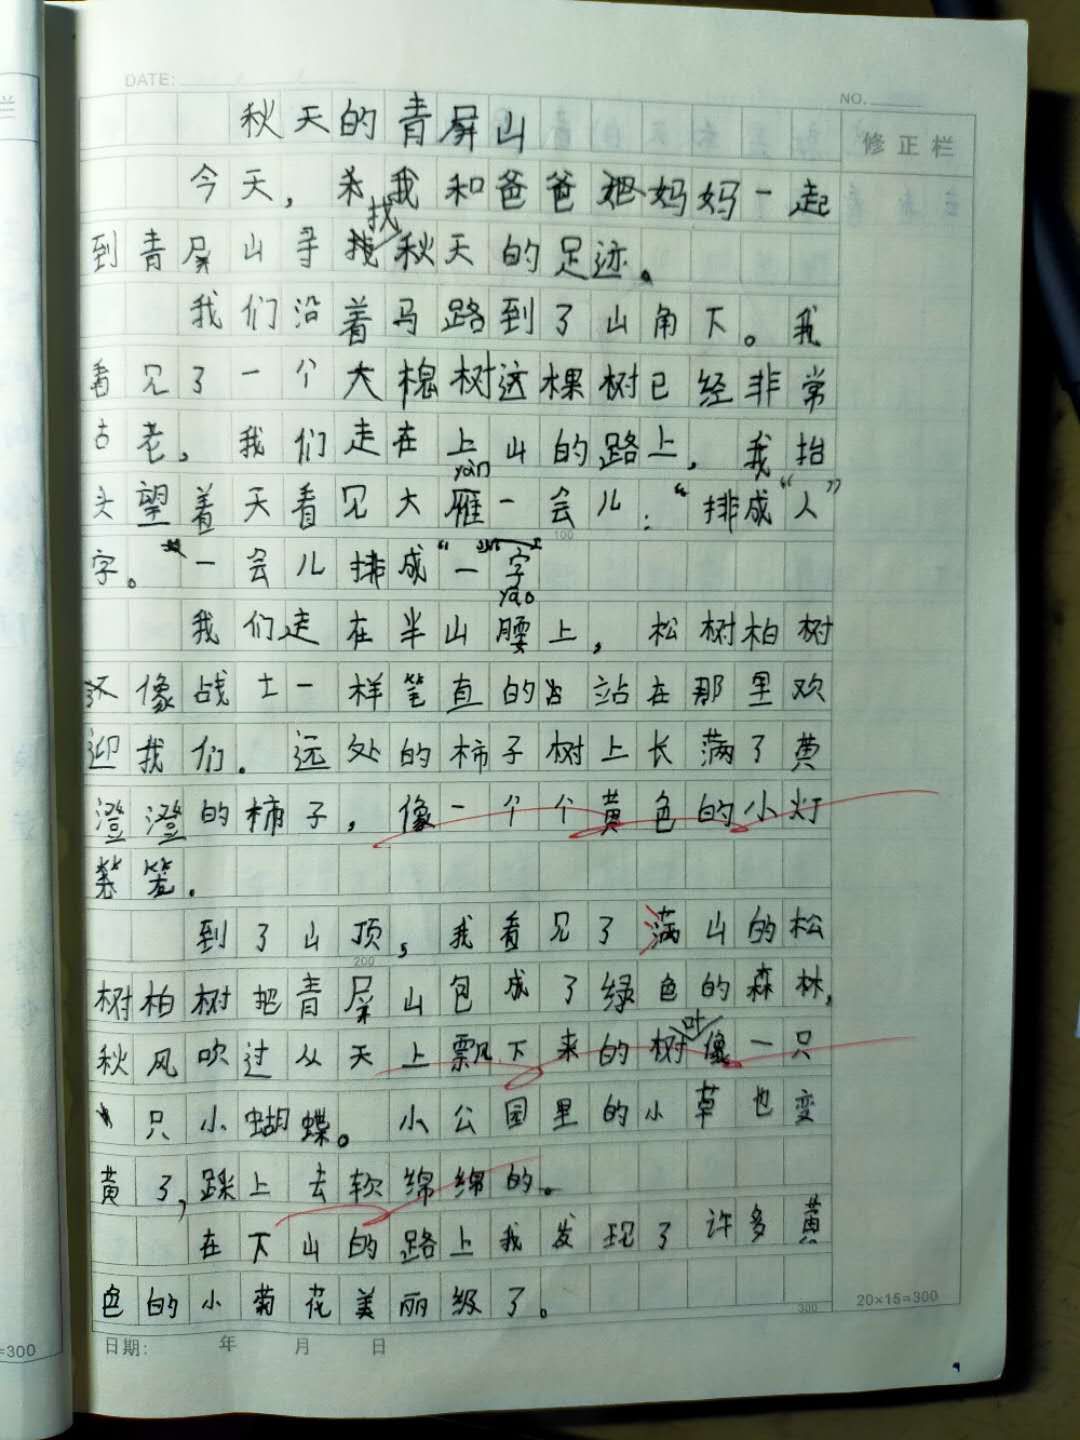 DATE:
NO.
修正栏
秋天的青屏山
今天，我和爸爸妈妈一起
到青屏山寻找秋天的足迹。
我们沿着马路到了山角下。我
看见了一个大槐树这棵树已经非常
古老，我们走在上山的路上，我抬
yàn
头望着天看见大雁一会儿：“排成“人”
字。”一会儿排成“一”字
yāo
我们走在半山腰上，松树柏树
好像战士一样笔直的站在那里欢
迎我们．远处的柿子树上长满了黄
澄澄的柿子，像一个个黄色的小灯
笼．
到了山顶，我看见了满山的松
树柏树把青屏山包成了绿色的森林，
秋风吹过从天上飘下来的树叶像一只
只小蝴蝶。小公园里的小草也变
黄了，踩上去软绵绵的。
在下山的路上我发现了许多黄
色的小菊花美丽级了。
100
200
300
20×15=300
日期： 年 月 日
=300